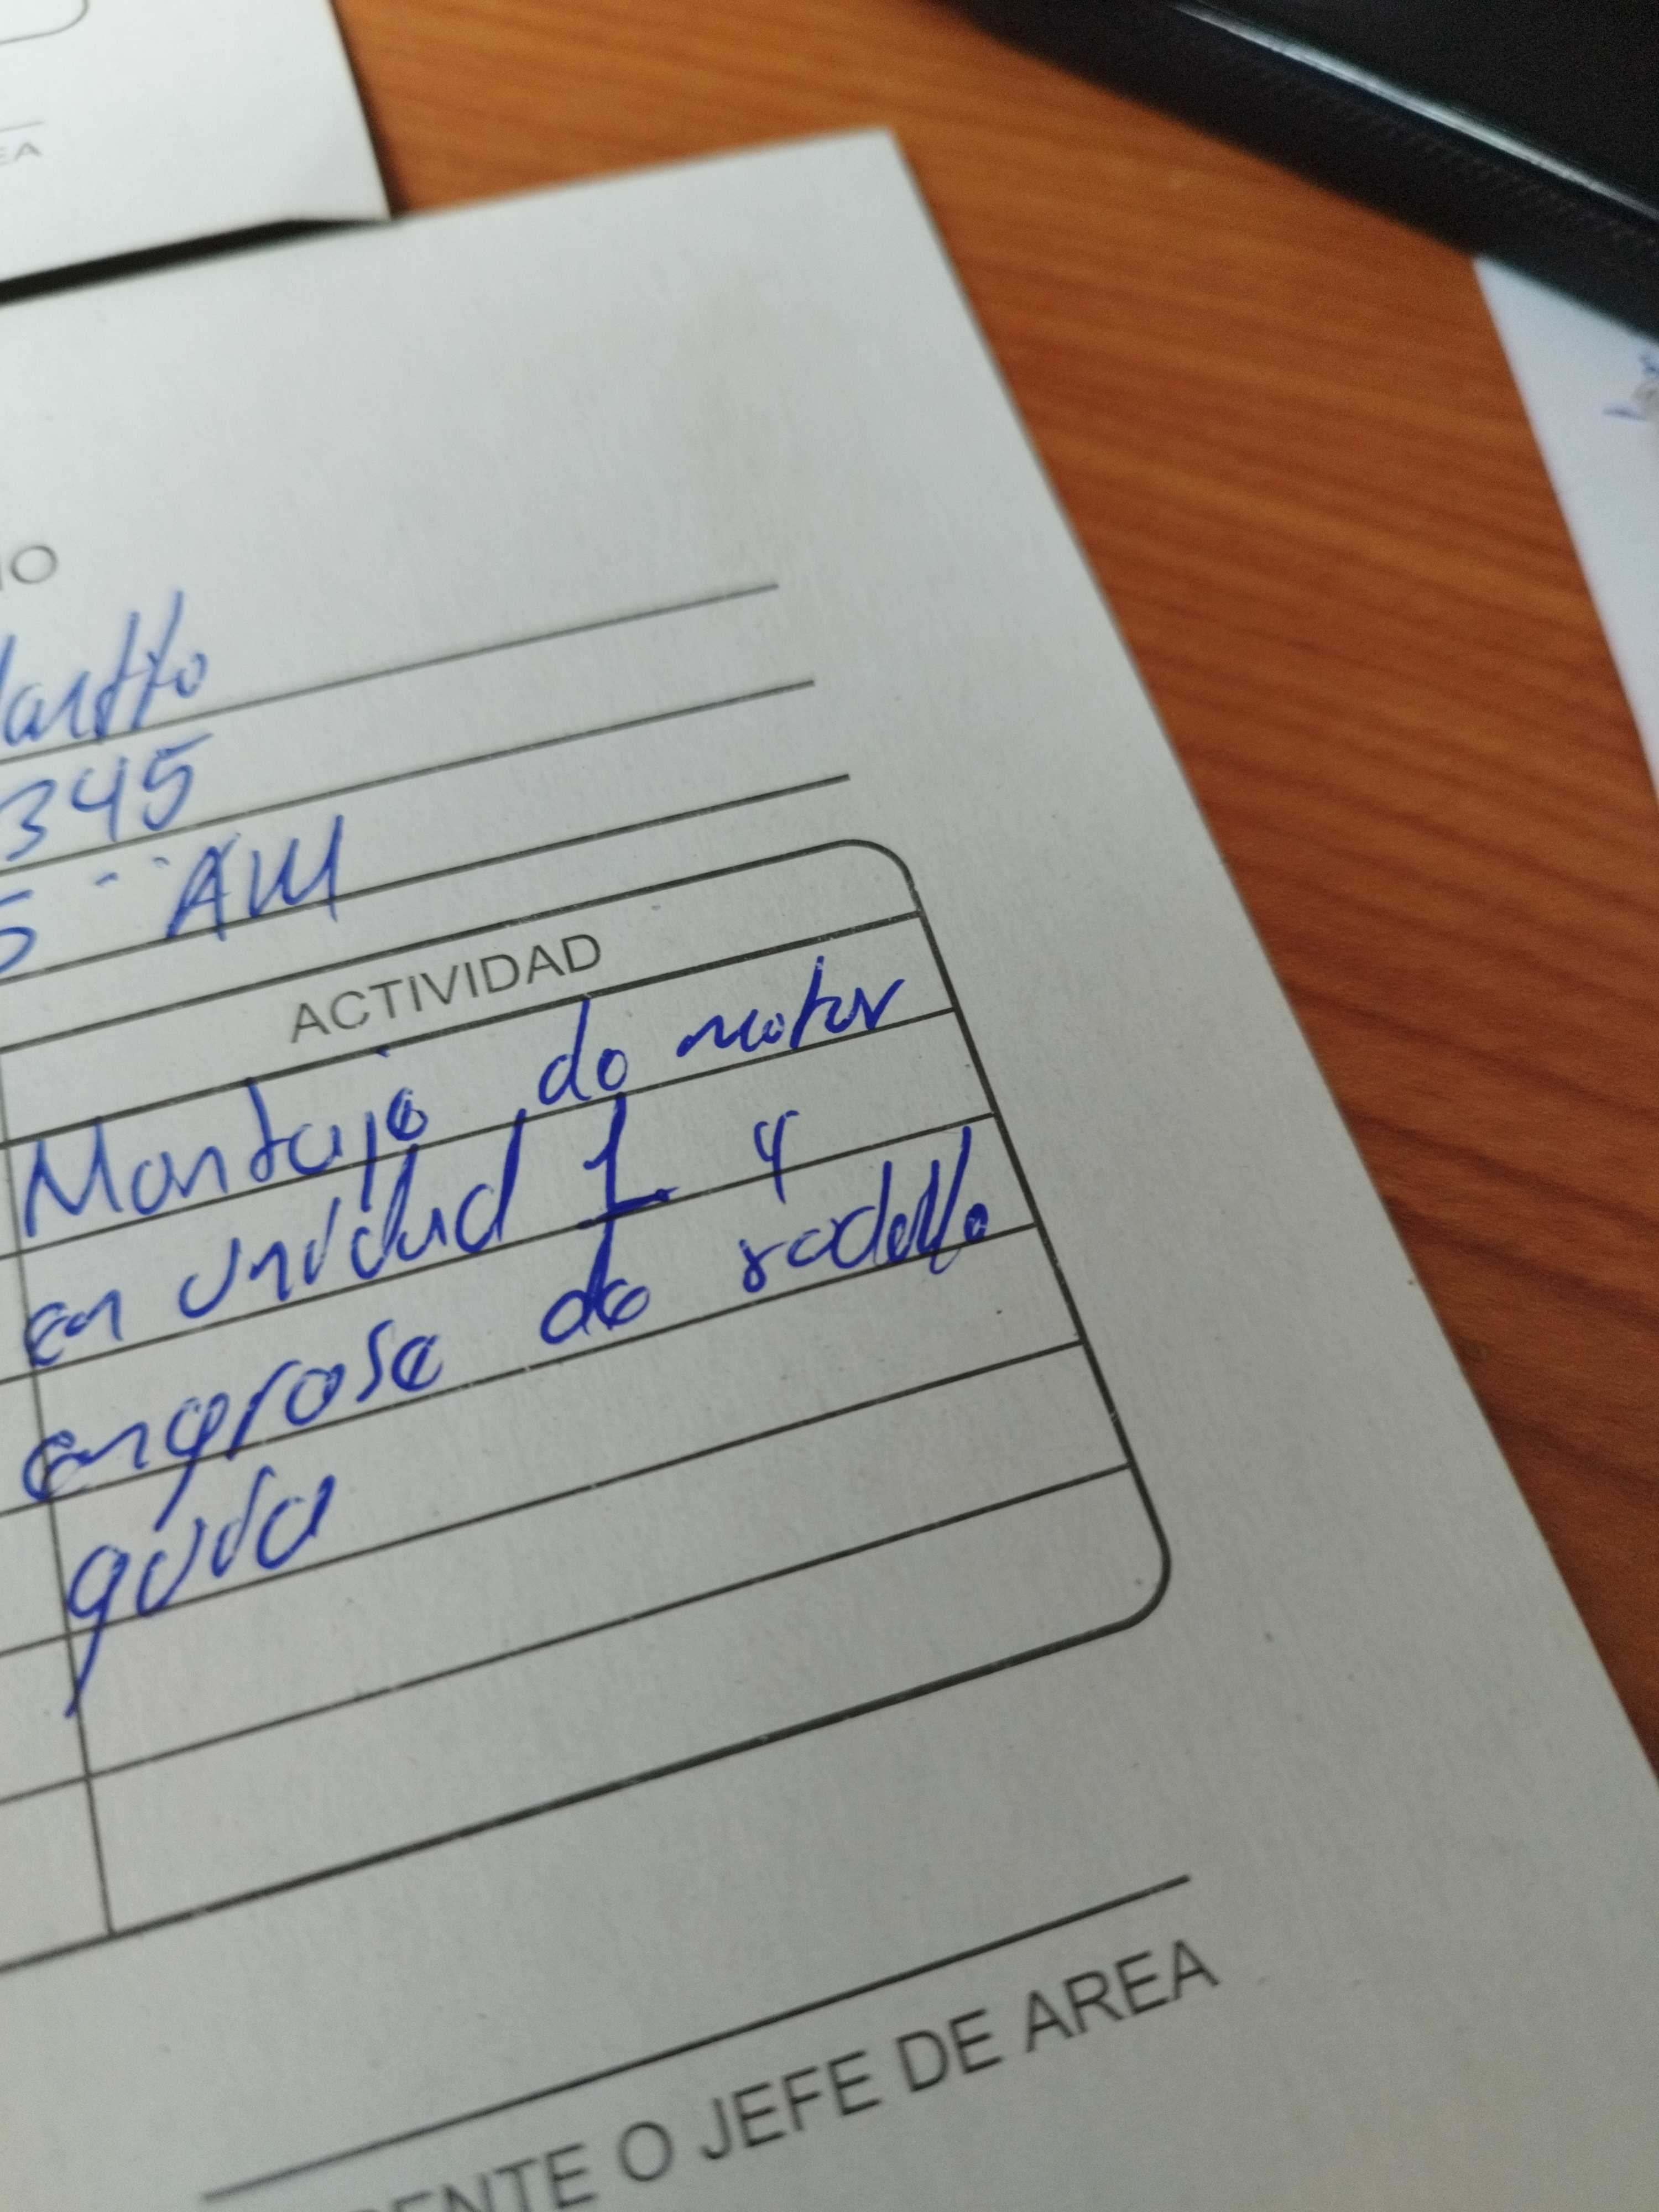 EA
IO
345
5 AM
ACTIVIDAD
Montaje de motor
en unidad 1 y
engrase de rodillo
guia
ENTE O JEFE DE AREA